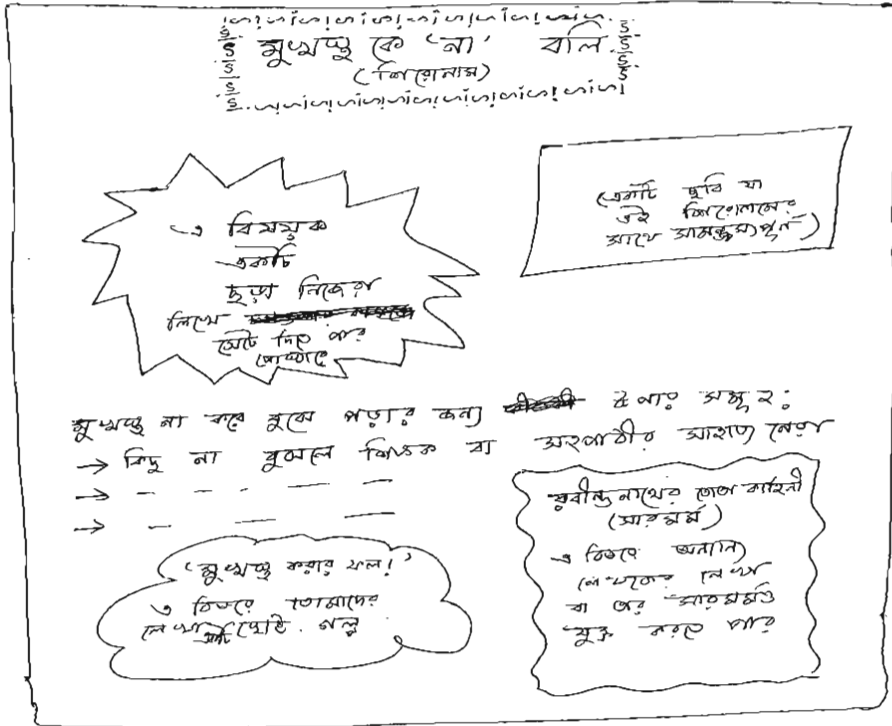 মুখস্থ কে 'না' বলি
(শিরোনাম)
এ বিষয়ক
একটি
ছড়া নিজেরা
লিখে
সেটে দিতে পার
পোস্টারে
(একটি ছবি যা
এই শিরোনামের
সাথে সামঞ্জস্যপূর্ণ)
মুখস্থ না করে বুঝে পড়ার জন্য উপায় সমূহ:
→ কিছু না বুঝলে শিক্ষক বা সহপাঠীর সাহায্য নেয়া
→ - - - -
→ - - - -
'মুখস্থ করার ফল!'
এ বিষয়ে তোমাদের
লেখা একটি ছোট গল্প
রবীন্দ্রনাথের তোতা কাহিনী
(সারমর্ম)
এ বিষয়ে অন্যান্য
লেখকের লেখা
বা তার সারমর্মও
যুক্ত করতে পার